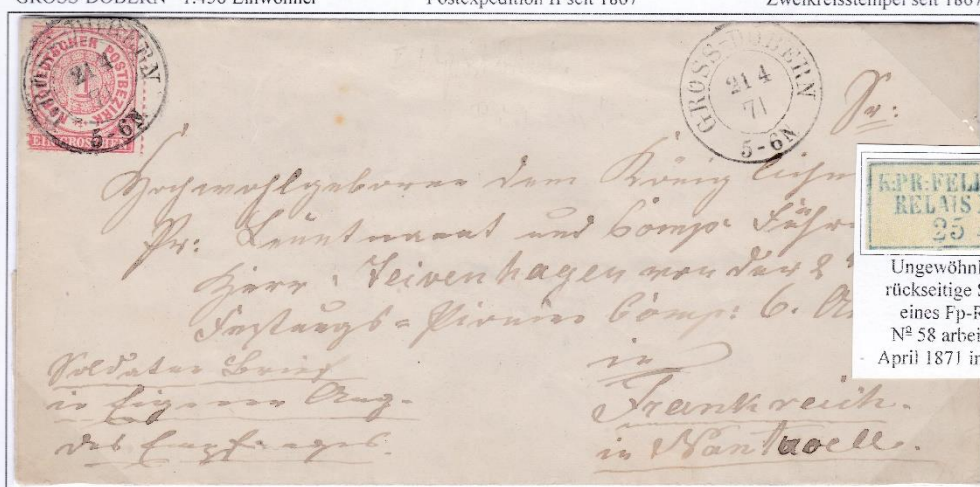 GROSS-DÖBERN 1.456 Einwohner Postexpedition II seit 1867 Zweikreisstempel seit 1867
NORDDEUTSCHER POSTBEZIRK
1
EIN GROSCHEN
21 4
71
5-6N
GROSS-DÖBERN
21 4
71
5-6N
Sr:
Hochwohlgeboren dem König lichen
Pr: Leutnant und Comp: Führ
Herrn von der 2
Festungs-Pionier Comp: 6. A
in
Frankreich.
in
Soldaten Brief
in Eigener Ang-
des Empfängers
K:PR:FEL
RELAIS
25
Ungewöhnl
rückseitige S
eines Fp-R
Nº 58 arbei
April 1871 in